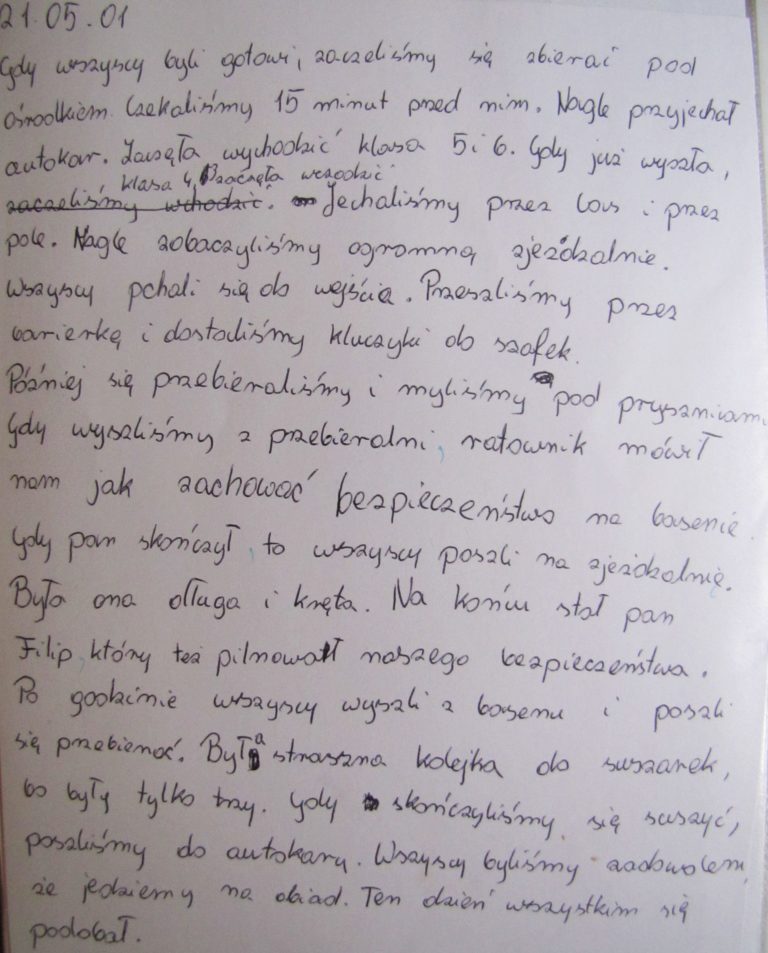 21.05.01
Gdy wszyscy byli gotowi, zaczeliśmy się zbierać pod
ośrodkiem. Czekaliśmy 15 minut przed nim. Nagle przyjechał
autokar. Zaczęła wychodzić klasa 5 i 6. Gdy już wyszła,
klasa 4, zaczęła wchodzić
zaczeliśmy wchodzić. Jechaliśmy przez las i przez
pole. Nagle zobaczyliśmy ogromną zjeżdzalnie.
Wszyscy pchali się do wejścia. Przeszliśmy przez
barierkę i dostaliśmy kluczyki do szafek.
Później się przebieraliśmy i myliśmy pod prysznicami.
Gdy wyszliśmy z przebieralni, ratownik mówił
nam jak zachować bezpieczeństwo na basenie.
Gdy pan skończył, to wszyscy poszli na zjeżdzalnię.
Była ona długa i kręta. Na końcu stał pan
Filip, który też pilnował naszego bezpieczeństwa.
Po godzinie wszyscy wyszli z basenu i poszli
się przebierać. Była straszna kolejka do suszarek,
bo były tylko trzy. Gdy skończyliśmy się suszyć,
poszliśmy do autokaru. Wszyscy byliśmy zadowoleni,
że jedziemy na obiad. Ten dzień wszystkim się
podobał.